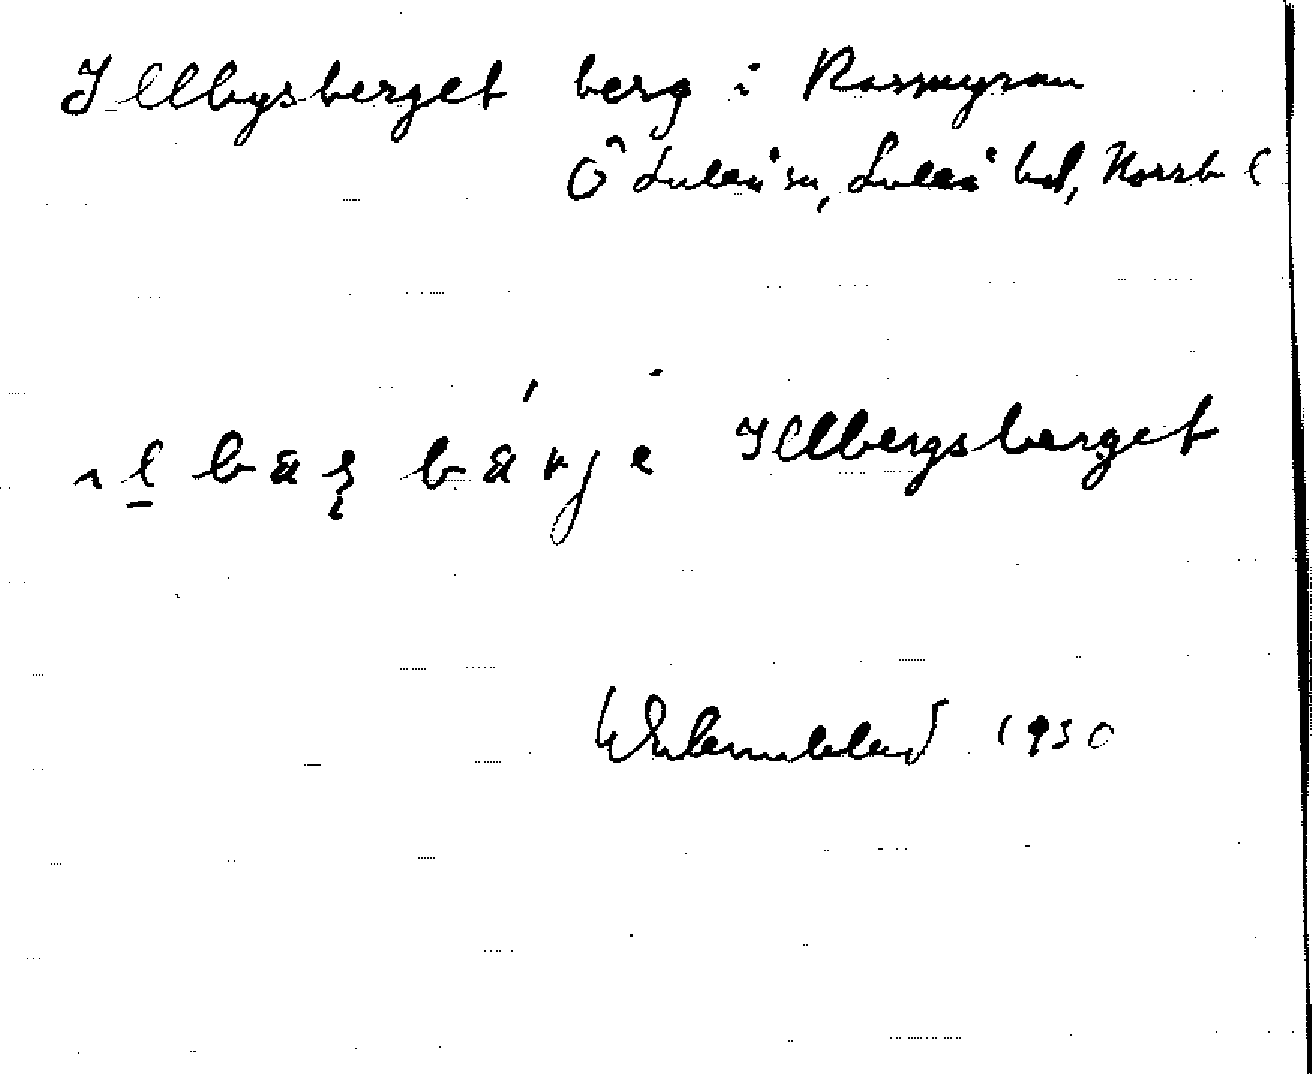 Illbysberget berg i Rasmyran
Ö Luleå sn, Luleå bd, Norrb l
ilbäsbärje Illbergsberget
1930